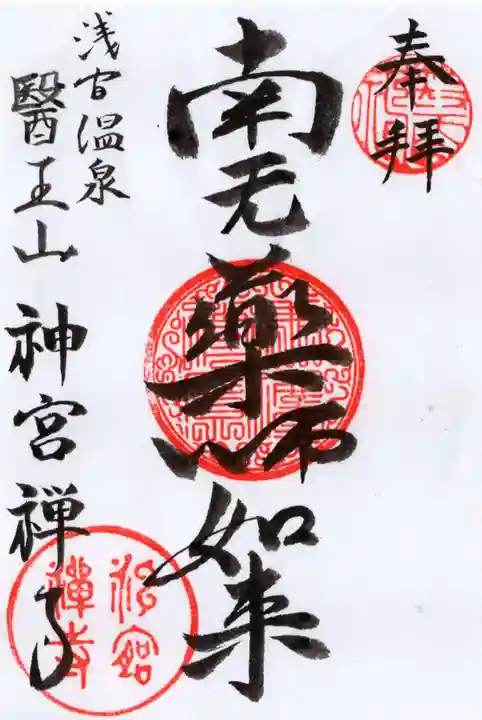 奉拝
南无薬師如来
浅间温泉
醫王山 神宮禅寺
神宮
禅寺